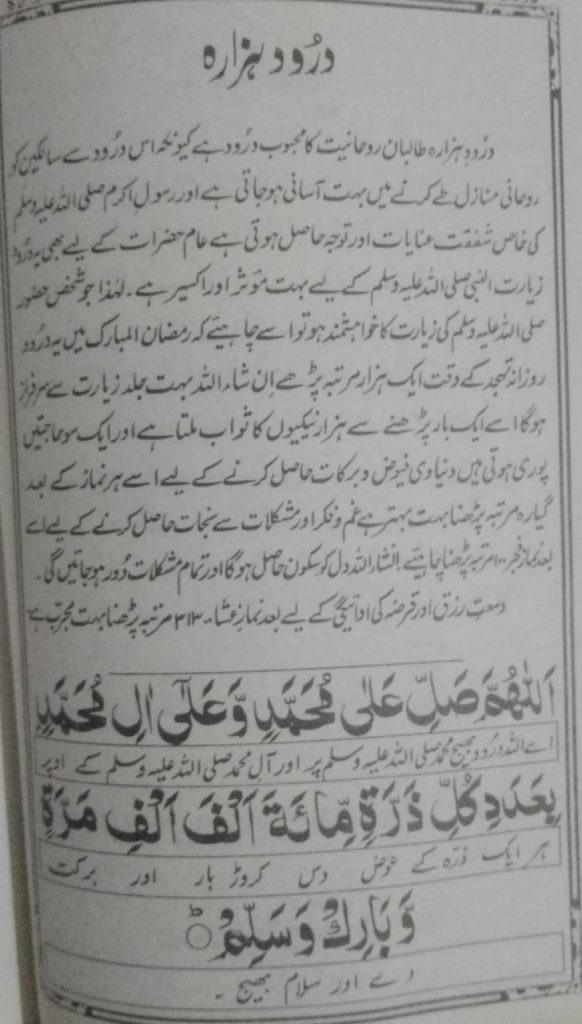 درُود ہزارہ
درُود ہزارہ طالبان روحانیت کا محبوب درُود ہے کیونکہ اس درُود سے سالکین کو
روحانی منازل طے کرنے میں بہت آسانی ہو جاتی ہے اور رسول اکرم صلی اللہ علیہ وسلم
کی خاص شفقت عنایات اور توجہ حاصل ہوتی ہے عام حضرات کے لیے بھی یہ درُود
زیارت النبی صلی اللہ علیہ وسلم کے لیے بہت مؤثر اور اکسیر ہے۔ لہٰذا جو شخص حضور
صلی اللہ علیہ وسلم کی زیارت کا خواہشمند ہو تو اسے چاہیئے کہ رمضان المبارک میں یہ درُود
روزانہ تہجد کے وقت ایک ہزار مرتبہ پڑھے اِن شاء اللہ بہت جلد زیارت سے سرفراز
ہوگا اسے ایک بار پڑھنے سے ہزار نیکیوں کا ثواب ملتا ہے اور ایک سو حاجتیں
پوری ہوتی ہیں دنیاوی فیوض و برکات حاصل کرنے کے لیے اسے ہر نماز کے بعد
گیارہ مرتبہ پڑھنا بہت بہتر ہے غم و فکر اور مشکلات سے نجات حاصل کرنے کے لیے اسے
بعد نماز فجر ۱۰۰ مرتبہ پڑھنا چاہیئے انشاء اللہ دل کو سکون حاصل ہوگا اور تمام مشکلات دُور ہو جائیں گی۔
وسعت رزق اور قرضہ کی ادائیگی کے لیے بعد نمازِ عشاء ۳۱۳ مرتبہ پڑھنا بہت مجرّب ہے
اَللّٰهُمَّ صَلِّ عَلٰى مُحَمَّدٍ وَّعَلٰٓى اٰلِ مُحَمَّدٍ
اے اللہ درُود بھیج محمد صلی اللہ علیہ وسلم پر اور آل محمد صلی اللہ علیہ وسلم کے اوپر
بِعَدَدِ كُلِّ ذَرَّةٍ مِّائَةَ اَلْفَ اَلْفِ مَرَّةٍ
ہر ایک ذرّہ کے عوض دس کروڑ بار اور برکت
وَّبَارِكْ وَسَلِّمْ ؕ
دے اور سلام بھیج ۔